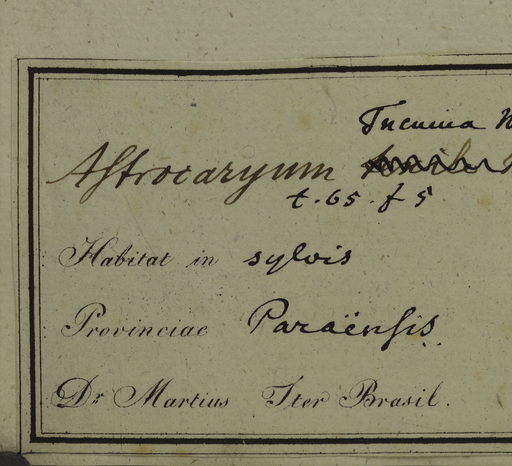 Tucuma
Astrocaryum
t. 65. f 5
Habitat in sylvis
Provinciae Paraënsis
Dr Martius Iter Brasil.